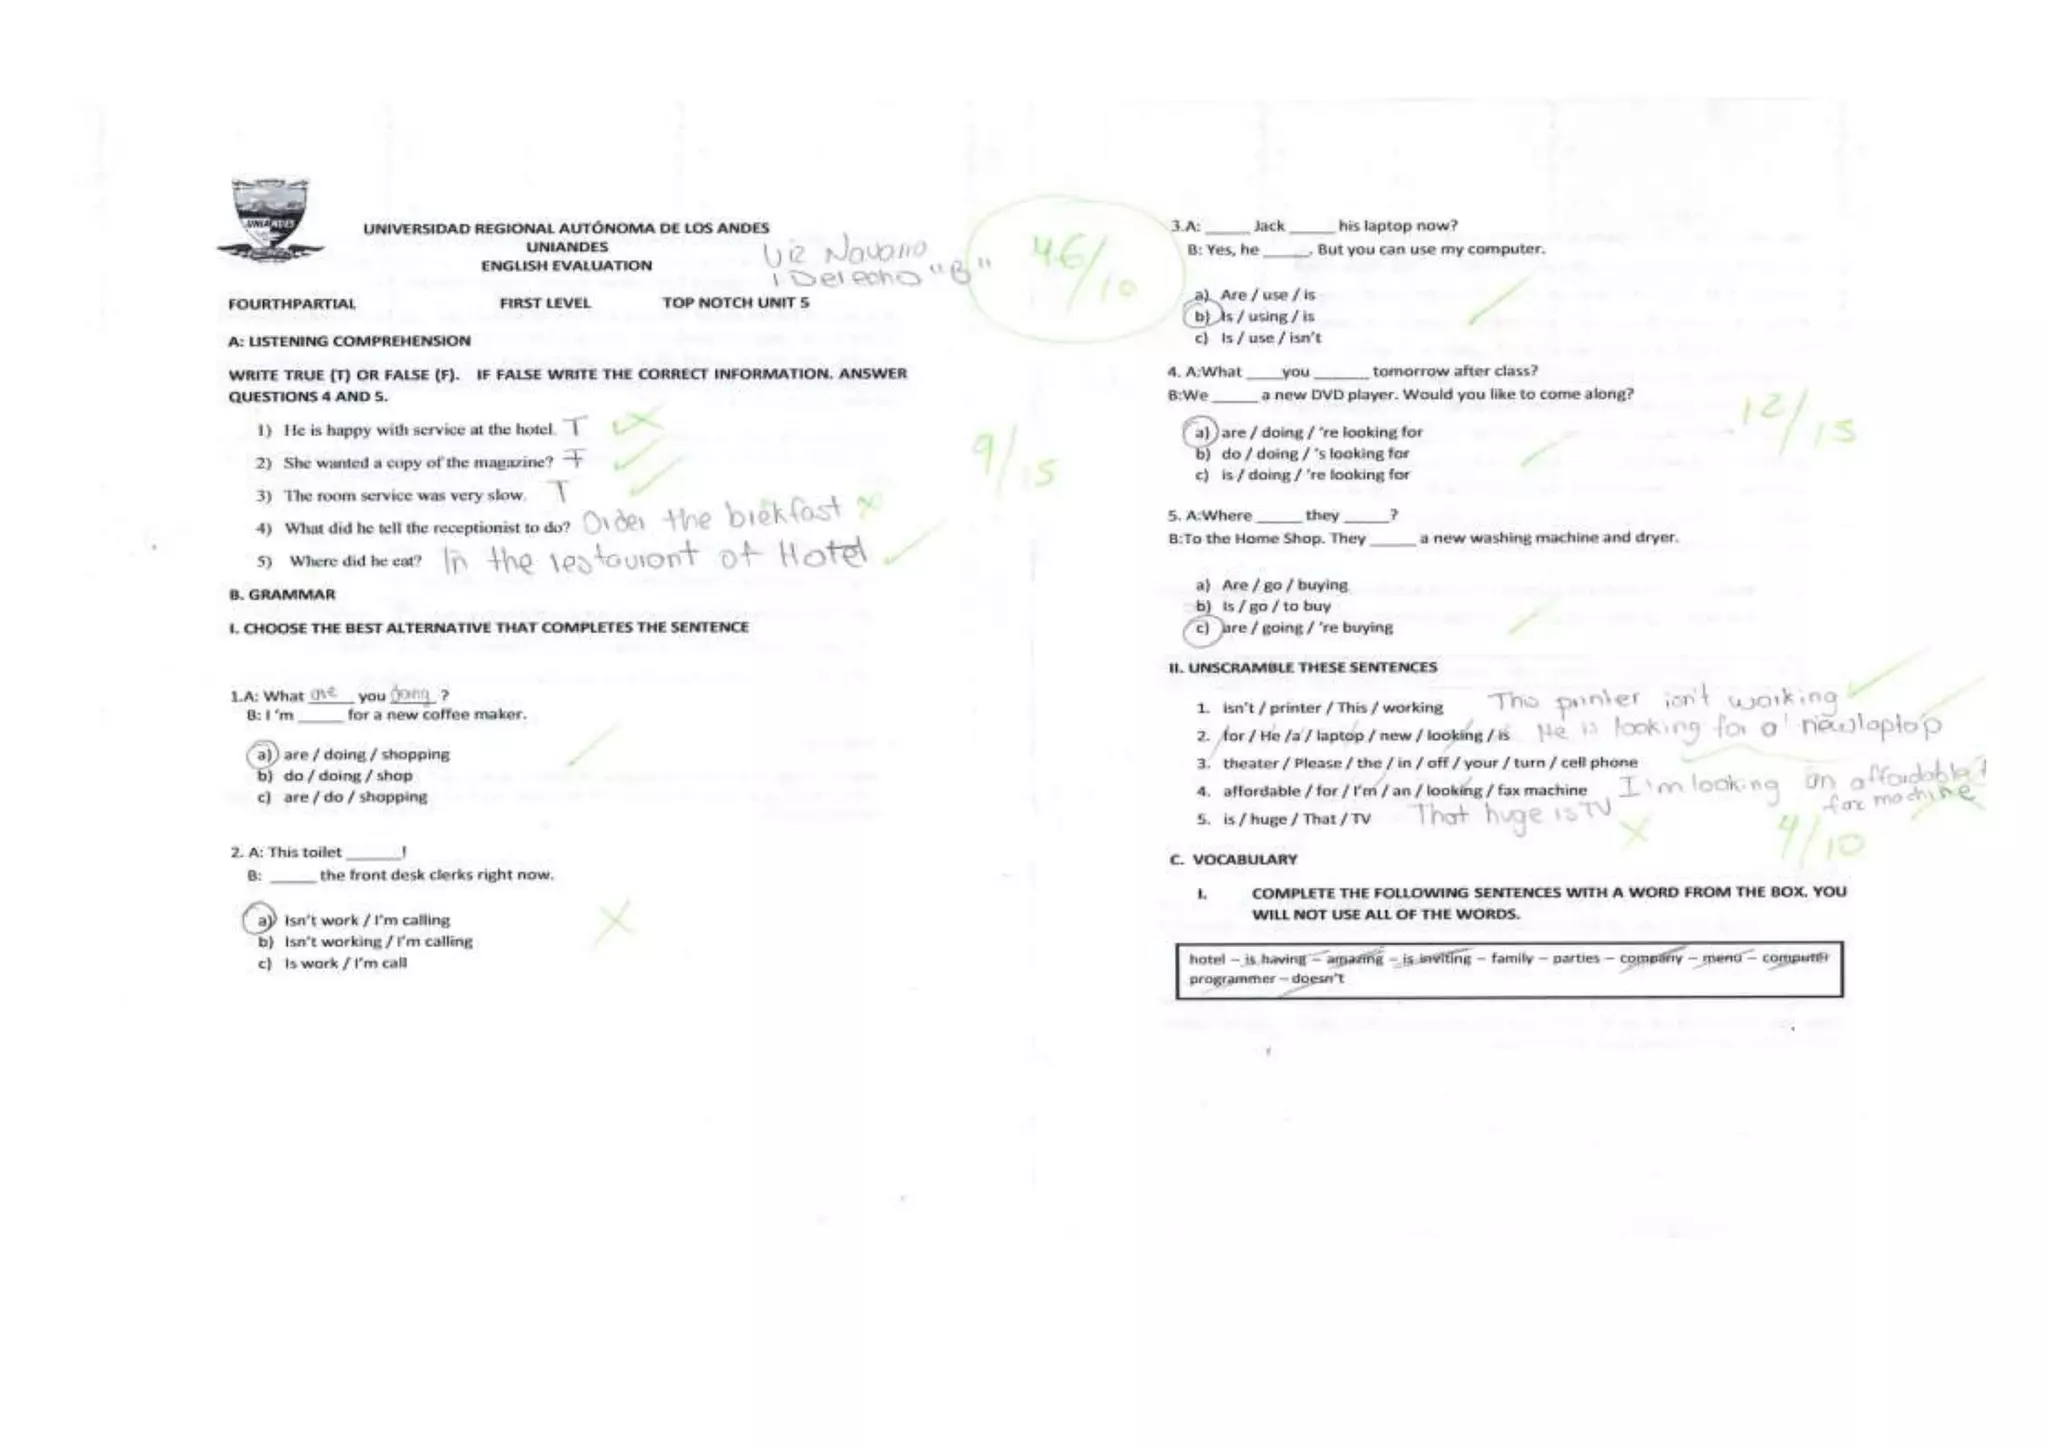 UNIANDES
UNIVERSIDAD REGIONAL AUTÓNOMA DE LOS ANDES
UNIANDES
ENGLISH EVALUATION
Navarro
1 Derecho "B"
46/70
FOURTHPARTIAL FIRST LEVEL TOP NOTCH UNIT 5
A: LISTENING COMPREHENSION
WRITE TRUE (T) OR FALSE (F). IF FALSE WRITE THE CORRECT INFORMATION. ANSWER
QUESTIONS 4 AND 5.
1) He is happy with service at the hotel. T
2) She wanted a copy of the magazine? F
3) The room service was very slow. T
9/15
4) What did he tell the receptionist to do? Order the brekfast
5) Where did he eat? In the restaurant of Hotel
B. GRAMMAR
I. CHOOSE THE BEST ALTERNATIVE THAT COMPLETES THE SENTENCE
1.A: What are you doing ?
B: I 'm _____ for a new coffee maker.
a) are / doing / shopping
b) do / doing / shop
c) are / do / shopping
2. A: This toilet ______!
B: _____ the front desk clerks right now.
a) Isn't work / I'm calling
b) Isn't working / I'm calling
c) Is work / I'm call
3.A: _____ Jack _____ his laptop now?
B: Yes, he _____. But you can use my computer.
a) Are / use / is
b) Is / using / is
c) Is / use / isn't
4. A:What ____you ______ tomorrow after class?
B:We _____ a new DVD player. Would you like to come along?
12/15
a) are / doing / 're looking for
b) do / doing / 's looking for
c) is / doing / 're looking for
5. A:Where _____ they _____?
B:To the Home Shop. They _____ a new washing machine and dryer.
a) Are / go / buying
b) Is / go / to buy
c) are / going / 're buying
II. UNSCRAMBLE THESE SENTENCES
1. isn't / printer / This / working This printer isn't working
2. for / He /a / laptop / new / looking / is He is looking for a new laptop
3. theater / Please / the / in / off / your / turn / cell phone
4. affordable / for / I'm / an / looking / fax machine I'm looking an affordable f
fax machine
5. is / huge / That / TV That huge is TV
4/10
C. VOCABULARY
I. COMPLETE THE FOLLOWING SENTENCES WITH A WORD FROM THE BOX. YOU
WILL NOT USE ALL OF THE WORDS.
hotel – is having – amazing – is inviting – family – parties – company – menu – computer
programmer – doesn't